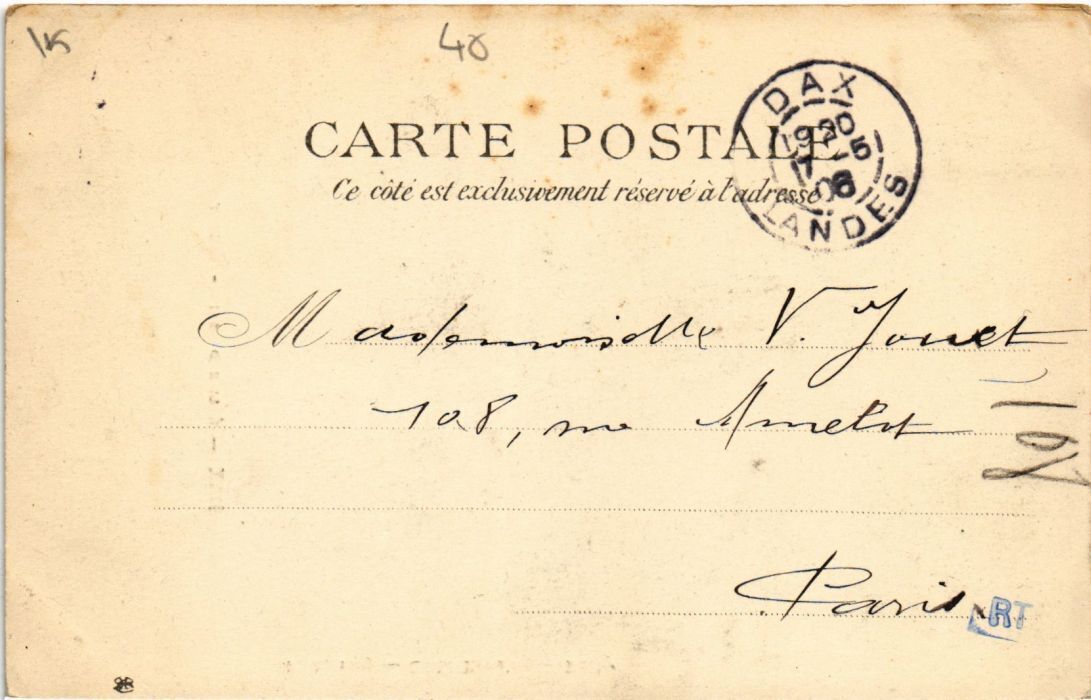 40
DAX
CARTE POSTALE
Ce côté est exclusivement réservé à l'adresse
LANDES
Mademoiselle V. Jouet
108, rue Amelot
108
Paris
RT